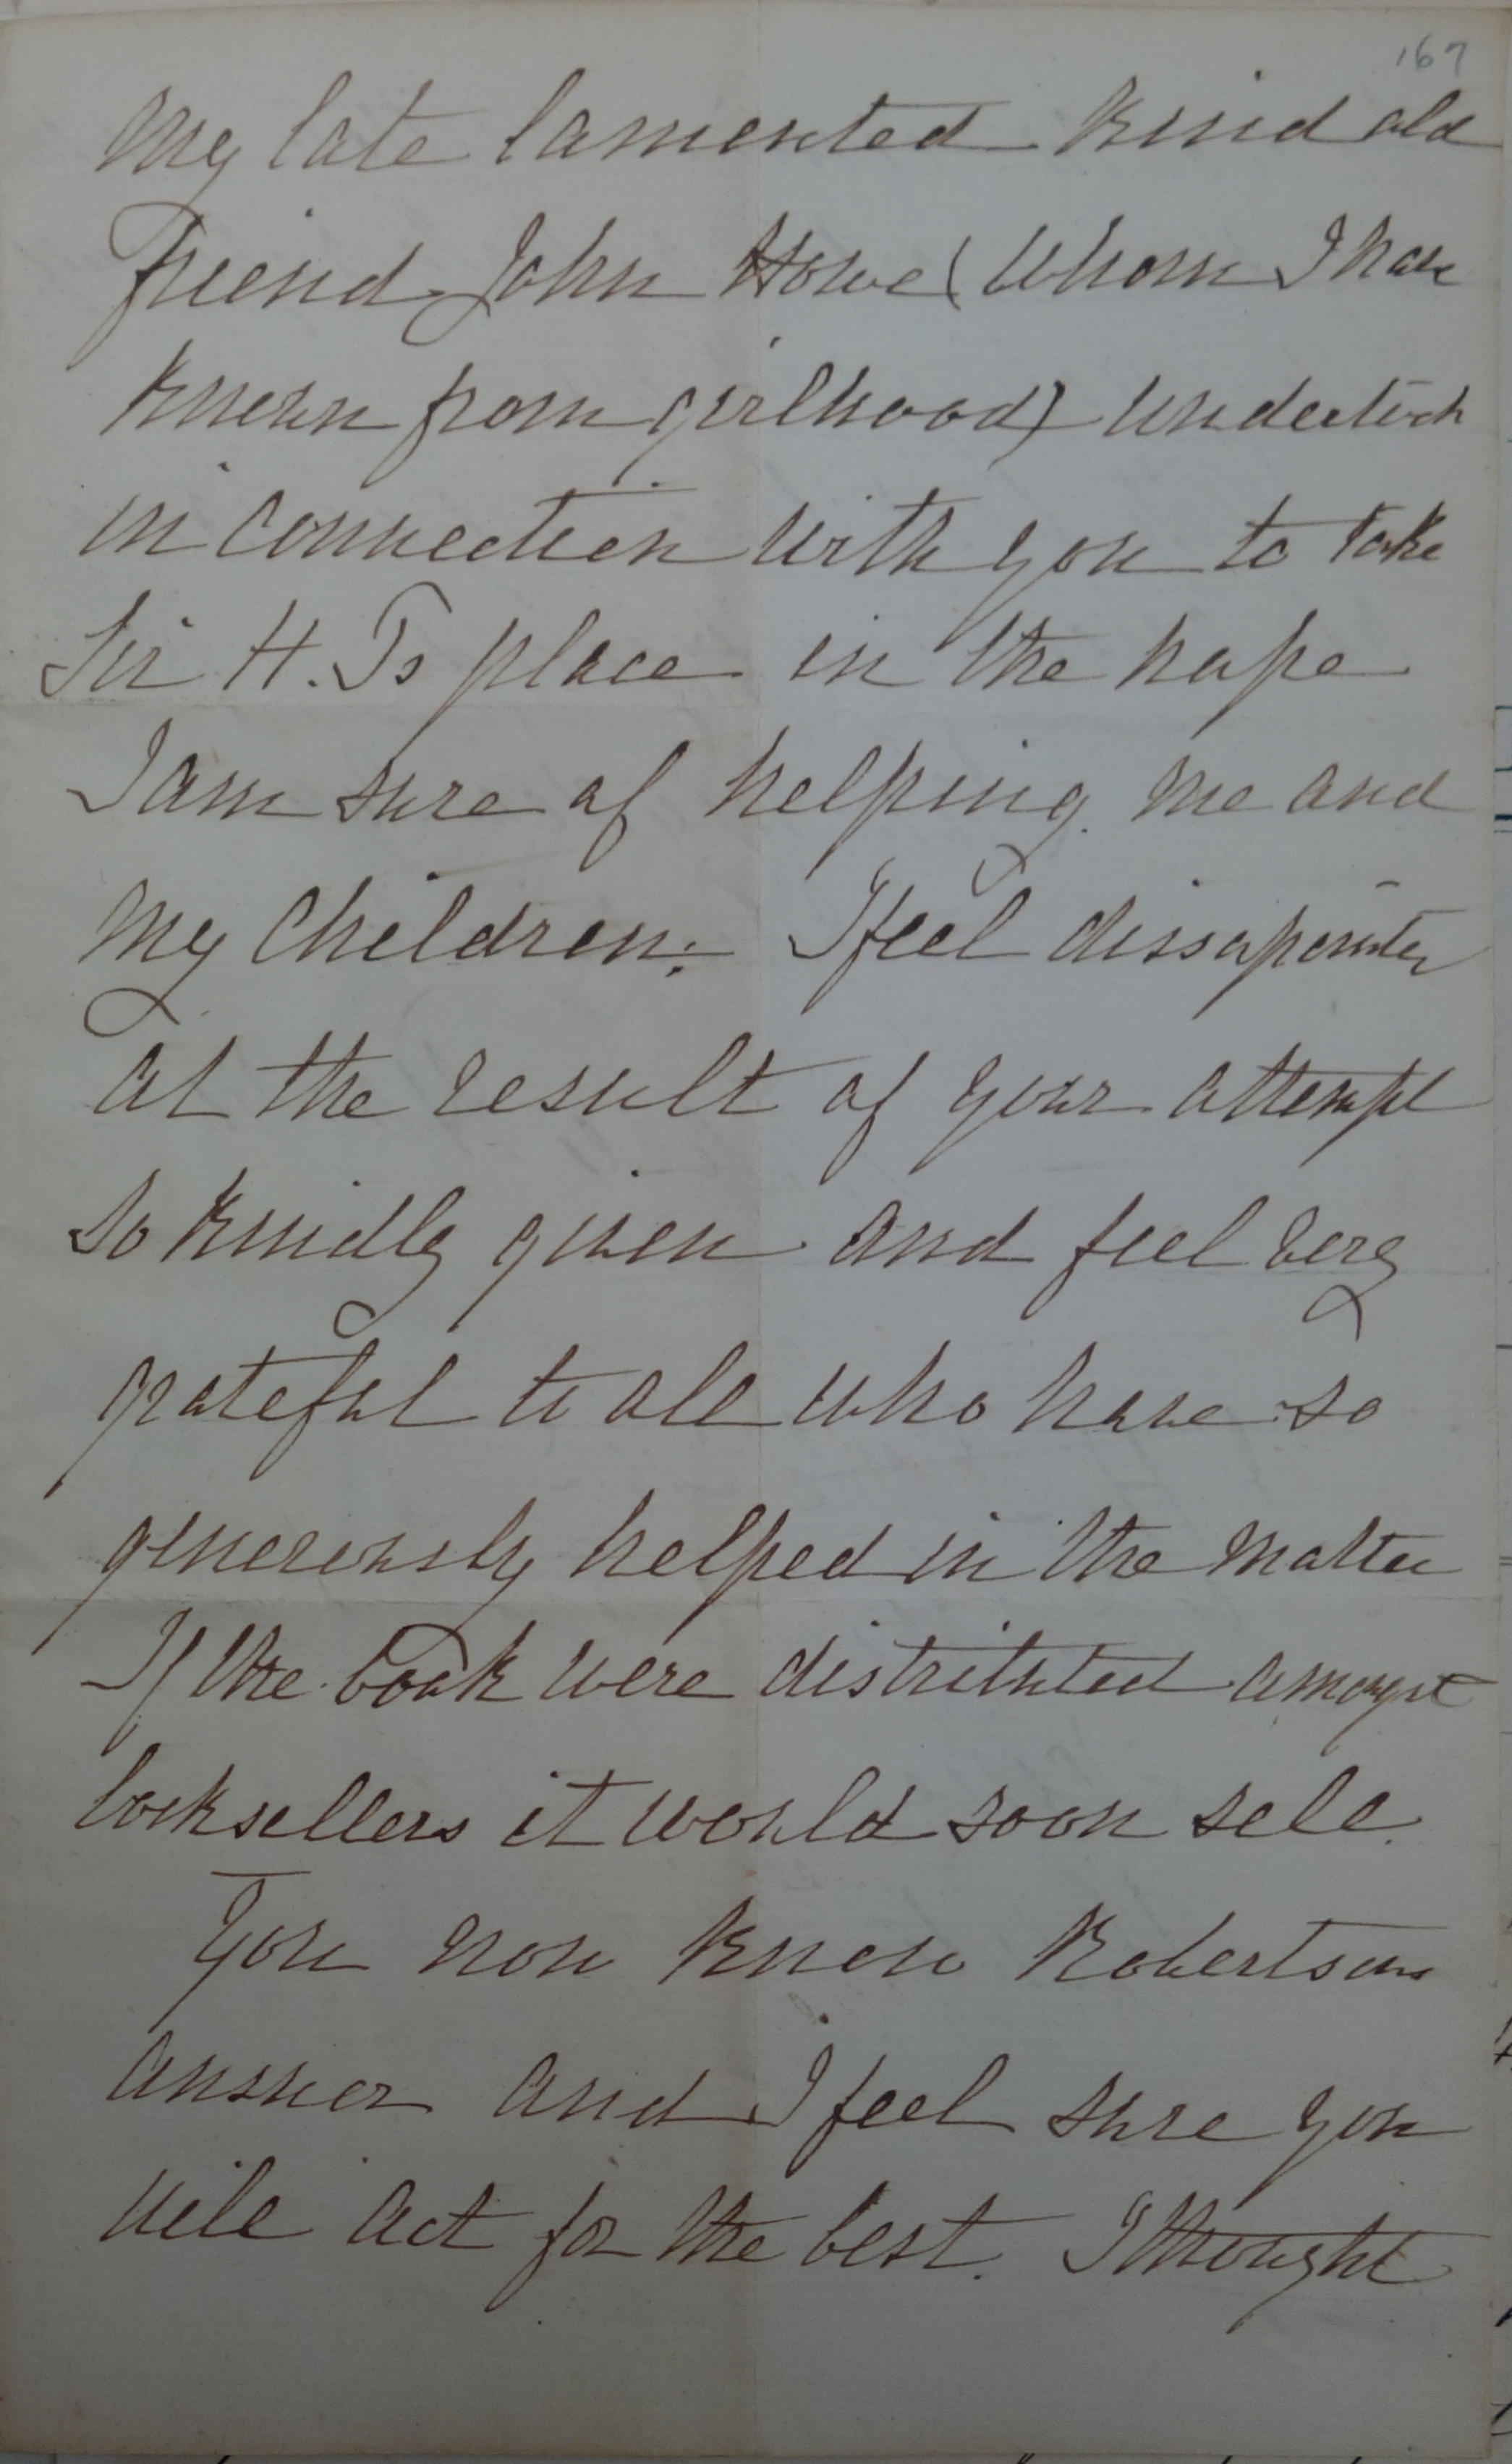 167
My late lamented kind old
Friend John Howe (whom I have
known from girlhood) undertook
in connection with you to take
Sir H. Ts place in the hope
I am sure of helping me and
my children. I feel dissapointed
at the result of your attempt
so kindly given and feel very
grateful to all who have so
generously helped in the matter
If the book were distributed amongst
booksellers it would soon sell.
You now know Robertsons
answer and I feel sure you
will act for the best. I thought